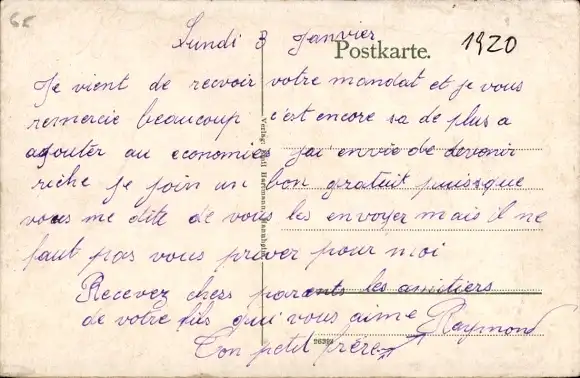 Lundi 3 Janvier
Postkarte.
1920
Je vient de recvoir votre mandat et je vous
remercie beaucoup c'est encore sa de plus a
agoutér au economies j'ai envie de devonir
riche Je join un bon gratuit puisque
vous me dite de vous les envoyer mais il ne
faut pas vous priver pour moi
Recevez chers parents les amitiers
de votre fils qui vous aime Raymond
Ton petit frère
26393